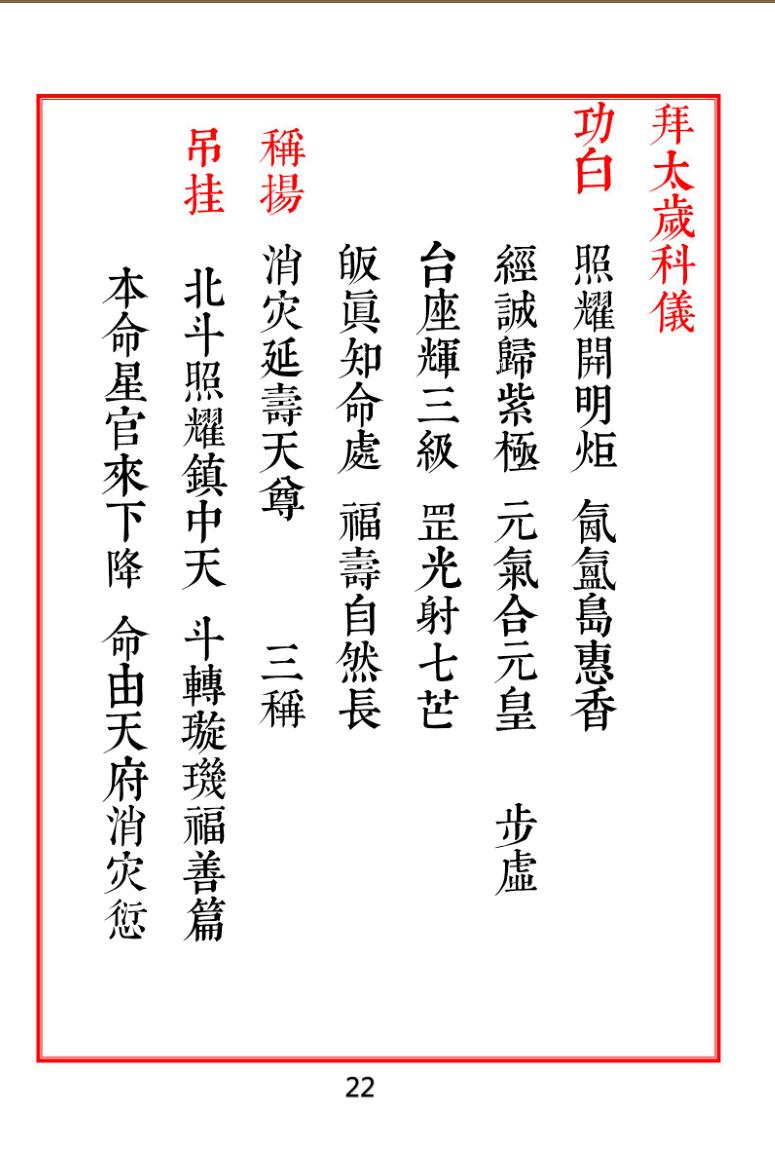 拜太歲科儀
功白 照耀開明炬 氤氳島惠香
經誠歸紫極 元氣合元皇 步虛
台座輝三級 罡光射七芒
皈眞知命處 福壽自然長
稱揚 消灾延壽天尊 三稱
吊挂 北斗照耀鎮中天 斗轉璇璣福善篇
本命星官來下降 命由天府消灾愆
22